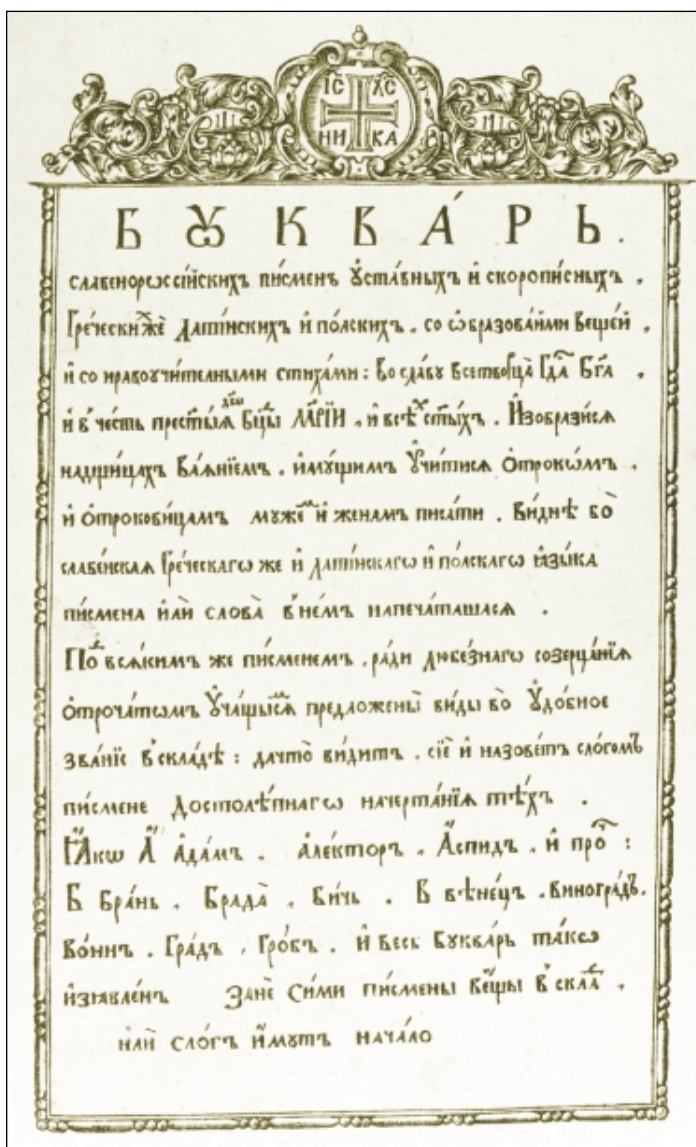 І҃С Х҃С
НИ КА
БꙊКВА́РЬ.
славенорѡссі́йскихъ пи́сменъ ᲂу҆ста́вныхъ и҆ скоропи́сныхъ .
Гре́ческихже Лати́нскихъ и҆ по́лскихъ . со ѡ҆бразова́ньми веще́й ,
и҆ со нравоꙋчи́телными стиха́ми : Во сла́вꙋ всетво́рца Гд҃а Бг҃а .
и҆ в че́сть прест҃ы́ѧ дв҃ы Бц҃ы МРІ́И . и҆ всѣ́х ст҃ы́хъ . И҆зобрази́сѧ
надщи́цахъ ваѧ́ніемъ . и҆мꙋ́щимъ Оу҆чи́тисѧ ѻ҆трокѡ́мъ .
и҆ ѻ҆трокови́цамъ мꙋже́м и҆ жена́мъ писа́ти . Ви́днѣ бо
славе́нскаѧ Гре́ческагѡ же и҆ лати́нскагѡ и҆ по́лскагѡ ꙗ҆зы́ка
пи́смена и҆лѝ слова̀ в не́мъ напеча́ташасѧ .
По всѧ́кимъ же пи́сменемъ . ра́ди любе́знагѡ созерца́ніѧ
ѻ҆троча́томъ Оу҆ча́щымсѧ предложены̀ ви́ды во Оу҆до́бное
зва́ніе в скла́дѣ : да что̀ ви́дитъ . сїѐ и҆ назове́тъ сло́гомъ
пи́смене Достолѣ́пнагѡ начерта́ніѧ тѣ́хъ .
Ꙗ҆́кѡ А҆ А҆да́мъ . а҆ле́кторъ . А҆́спидъ . и҆ про̑ :
Б Бра́нь . Брада̀ . Би́чь . В вѣне́цъ . Виногра́дъ .
Во́инъ . Гра́дъ , Гро́бъ . И҆ весь Бꙋква́рь та́кѡ
и҆з̾ѧвле́нъ Занѐ Си́ми пи́смены ве́щы в скла́д .
и҆лѝ сло́гъ и҆́мꙋтъ нача́ло